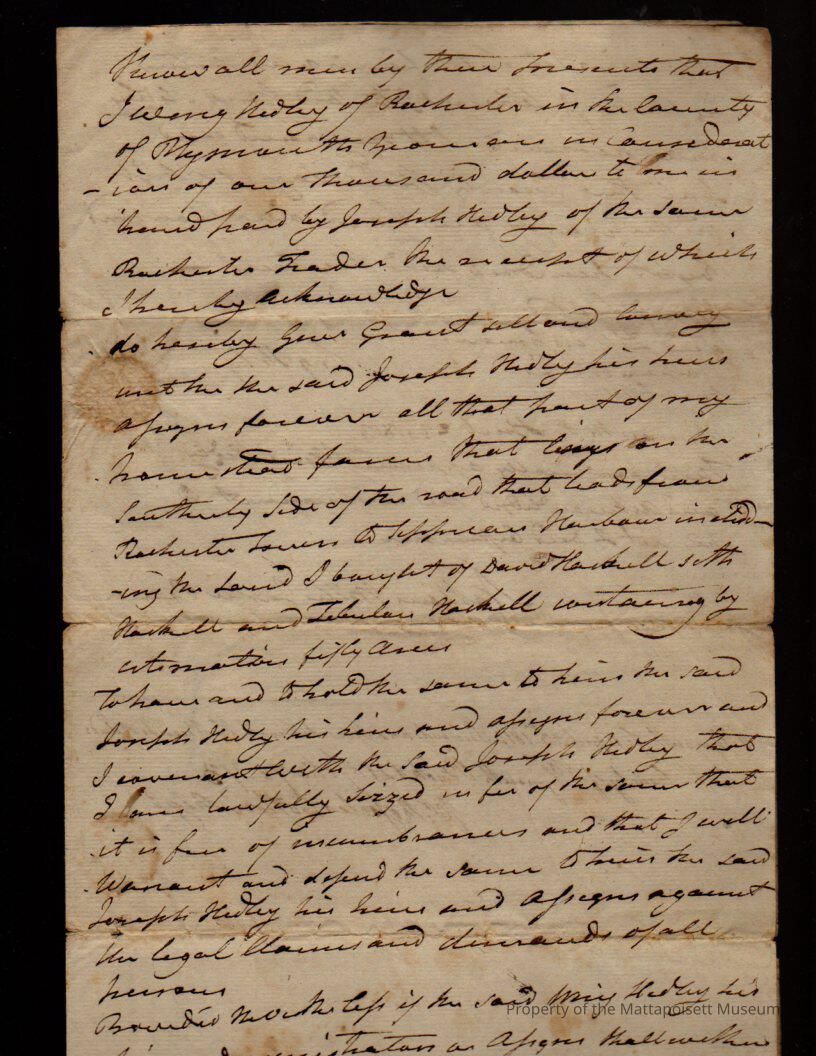 Know all men by these Presents that
I Wing Hedley of Rochester in the County
of Plymouth Yeoman in Considerat
-ion of one thousand dollars to me in
hand paid by Joseph Hedley of the same
Rochester Trader the receipt of which
I hereby acknowledge
do hereby Give Grant sell and Convey
unto the said Joseph Hedley his heirs
assigns forever all that part of my
homestead farm that lays on the
Southerly Side of the road that leads from
Rochester town to Sippican Harbour includ-
-ing the Land I bought of David Haskell Seth
Haskell and Zebulon Haskell containing by
estimation fifty Acres
To have and to hold the same to him the said
Joseph Hedley his heirs and assigns forever and
I covenant with the said Joseph Hedley that
I am lawfully Seized in fee of the same that
it is free of incumbrances and that I will
Warrant and defend the same to him the said
Joseph Hedley his heirs and Assigns against
the legal Claims and demands of all
persons
Provided Nevertheless if the said Wing Hedley his
or Assigns shall within
Property of the Mattapoisett Museum